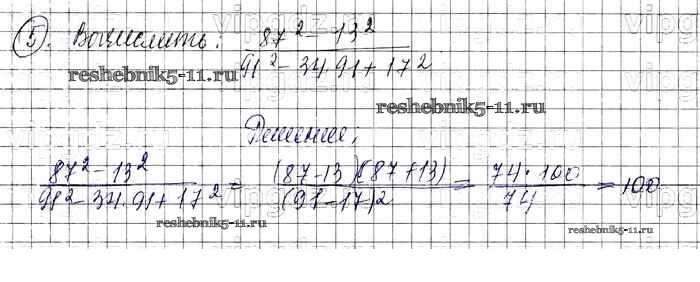 5. Вычислить: (87² - 13²) / (91² - 34·91 + 17²)
reshebnik5-11.ru
reshebnik5-11.ru
Решение:
(87² - 13²) / (91² - 34·91 + 17²) = (87-13)(87+13) / (91-17)² = 74·100 / 74 = 100
reshebnik5-11.ru
reshebnik5-11.ru